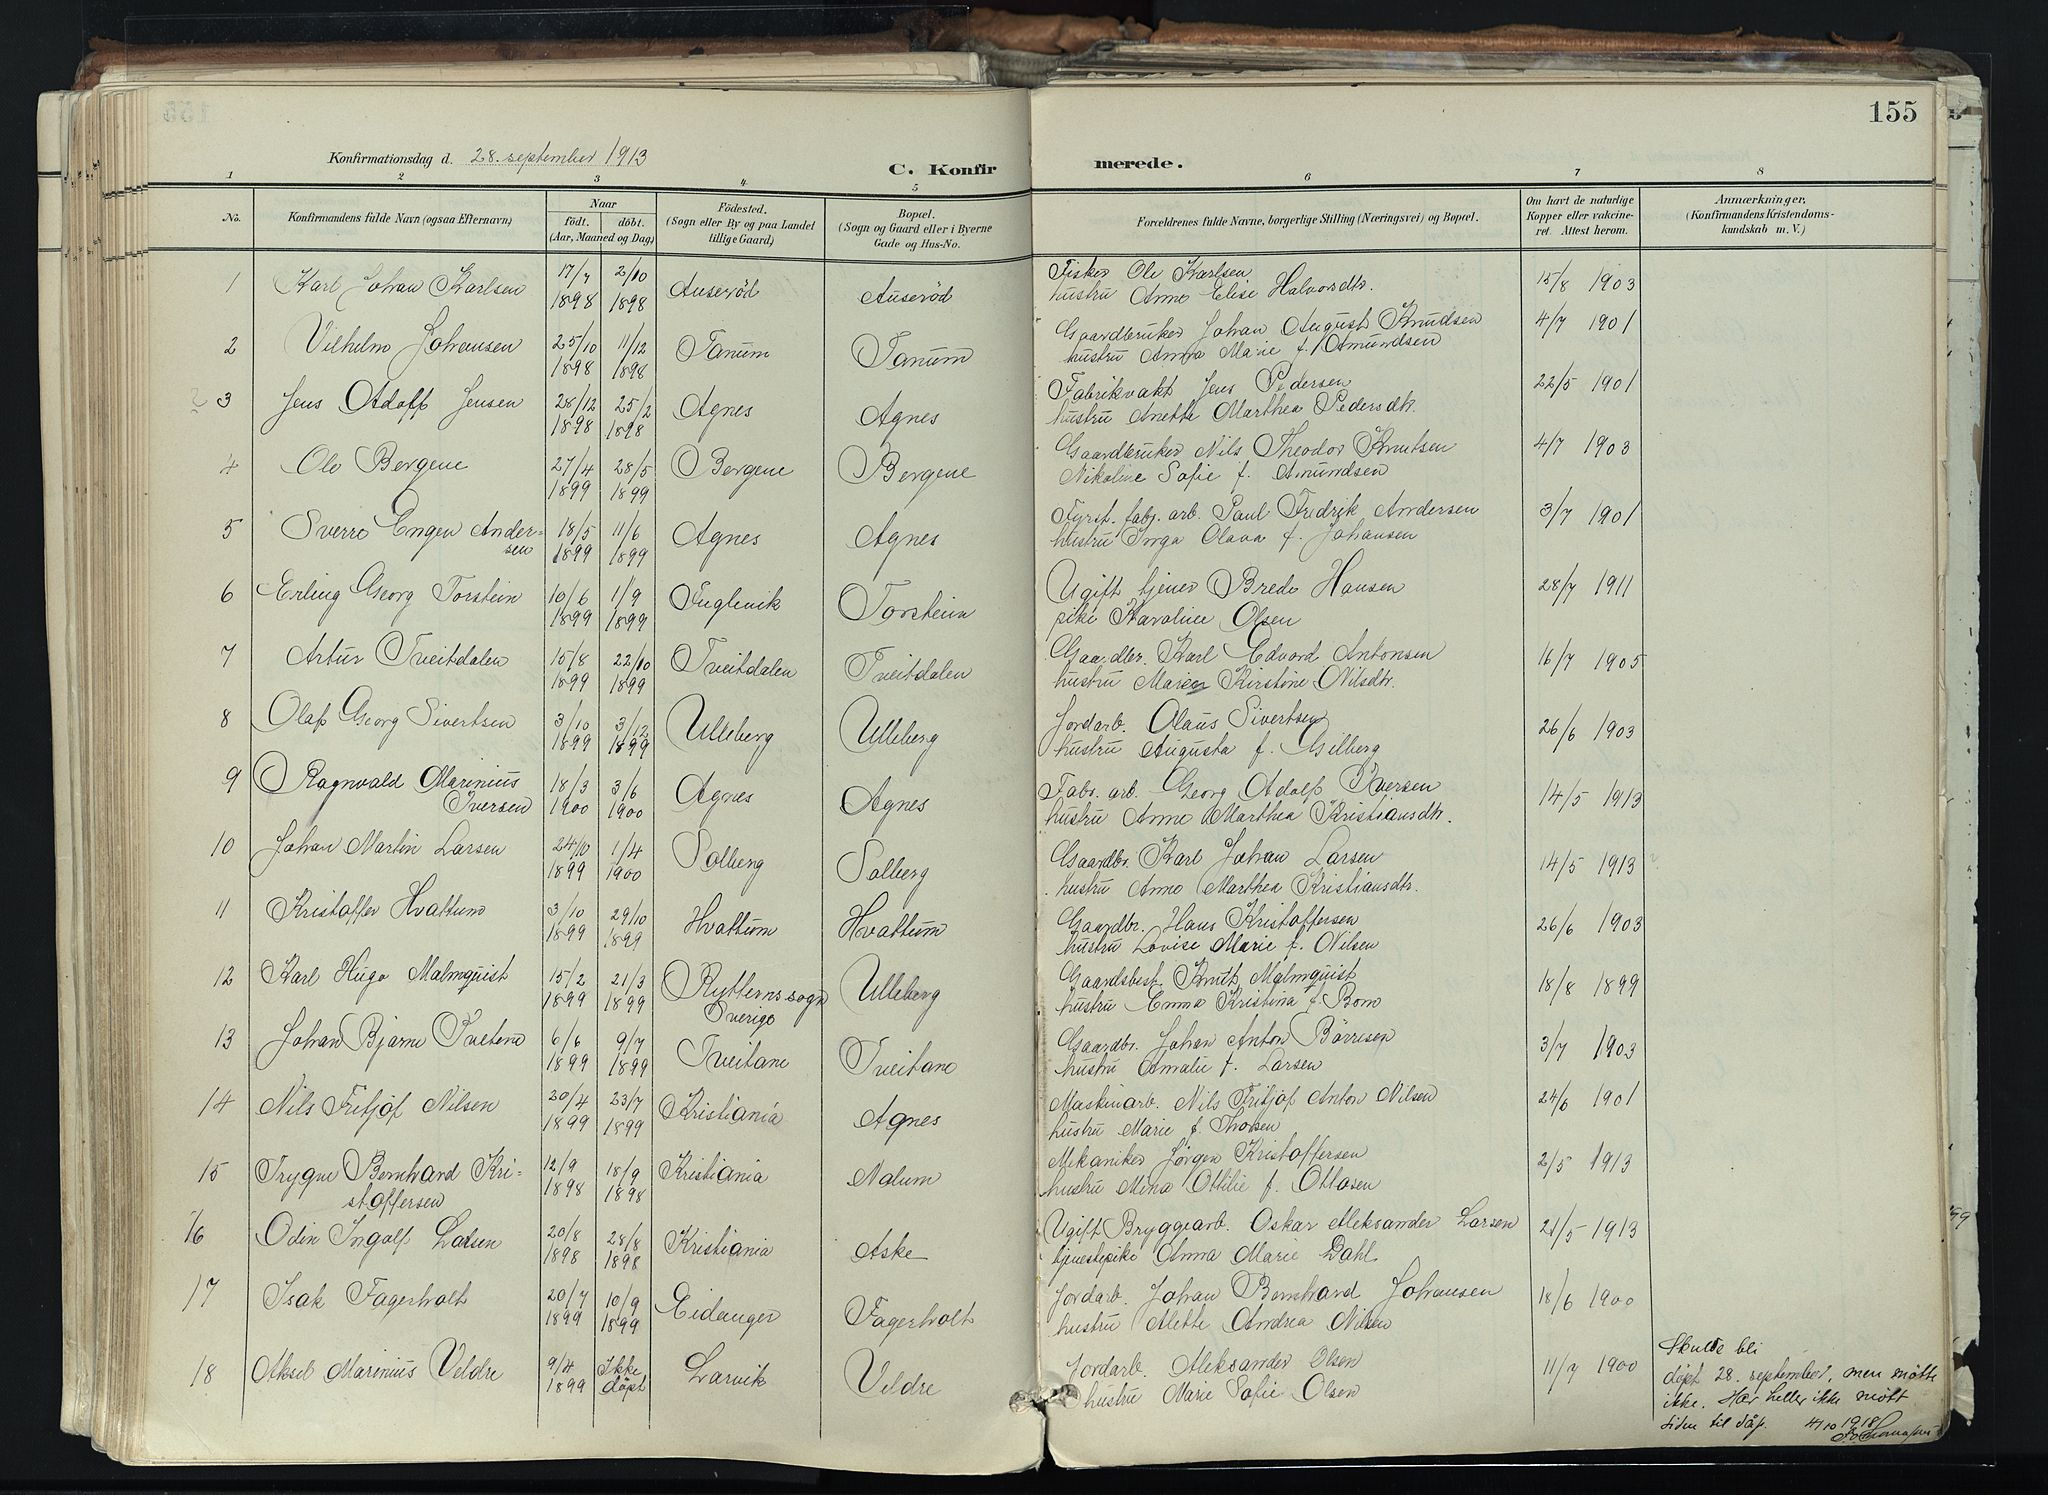 155
Konfirmationsdag d. 28. september 1913
C. Konfirmerede.
1 2 3 4 5 6 7 8
No.
Konfirmandens fulde Navn (ogsaa Efternavn)
Naar
født. døbt.
(Aar, Maaned og Dag)
Fødested.
(Sogn eller By og paa Landet
tillige Gaard)
Bopæl.
(Sogn og Gaard eller i Byerne
Gade og Hus-No.
Forældrenes fulde Navne, borgerlige Stilling (Næringsvei) og Bopæl.
Om havt de naturlige
Kopper eller vakcine-
ret. Attest herom.
Anmærkninger,
(Konfirmandens Kristendoms-
kundskab m. V.)
1 Karl Johan Karlsen 17/7 1898 2/10 1898 Auserød Auserød Fisker Ole Karlsen 15/8 1903
hustru Anne Elise Halvorsdtr.
2 Vilhelm Johansen 25/10 1898 11/12 1898 Tanum Tanum Gaardbruker Johan August Knudsen 4/7 1901
hustru Anna Marie f. Amundsen
3 Jens Adolf Jensen 28/12 1898 25/2 1898 Agnes Agnes Fabrikvakt Jens Pedersen 22/5 1901
hustru Anette Marthea Pedersdtr.
4 Ole Bergene 27/4 1899 28/5 1899 Bergene Bergene Gaardbruker Nils Theodor Knutsen 4/7 1903
Nikoline Sofie f. Amundsen
5 Sverre Engen Ander- 18/5 1899 11/6 1899 Agnes Agnes Fyrst. fabr. arb. Paul Fredrik Andersen 3/7 1901
sen hustru Inga Olava f. Johansen
6 Erling Georg Torstein 10/6 1899 1/9 1899 Fuglevik Torstein Ugift tjener Brede Hansen 28/7 1911
pike Karoline Olsen
7 Artur Tveitdalen 15/8 1899 22/10 1899 Tveitdalen Tveitdalen Gaardbr. Karl Edvard Antonsen 16/7 1905
hustru Maren Kirstine Nilsdtr.
8 Olaf Georg Sivertsen 3/10 1899 3/12 1899 Ulleberg Ulleberg Jordarb. Olaus Sivertsen 26/6 1903
hustru Augusta f. Gilberg
9 Ragnvald Marinius 18/3 1900 3/6 1900 Agnes Agnes Fabr. arb. Georg Adolf Iversen 14/5 1913
Iversen hustru Anne Marthea Kristiansdtr.
10 Johan Martin Larsen 24/10 1899 1/4 1900 Solberg Solberg Gaardbr. Karl Johan Larsen 14/5 1913
hustru Anne Marthea Kristiansdtr.
11 Kristoffer Hvattum 3/10 1899 29/10 1899 Hvattum Hvattum Gaardbr. Hans Kristoffersen 26/6 1903
hustru Lovise Marie f. Nilsen
12 Karl Hugo Malmquist 15/2 1899 21/3 1899 Rytterns sogn Ulleberg Gaardsbest. Knut Malmquist 18/8 1899
Sverige hustru Emma Kristina f. Bom
13 Johan Bjarne Tveitene 6/6 1899 9/7 1899 Tveitane Tveitane Gaardbr. Johan Anton Børresen 3/7 1903
hustru Amalie f. Larsen
14 Nils Fritjof Nilsen 20/4 1899 23/7 1899 Kristiania Agnes Maskinarb. Nils Fritjof Anton Nilsen 24/6 1901
hustru Marie f. Thorsen
15 Trygve Bernhard Kri- 12/9 1898 18/9 1898 Kristiania Nalum Mekaniker Jørgen Kristoffersen 2/5 1913
stoffersen hustru Mina Ottilie f. Ottosen
16 Odin Ingolf Larsen 20/8 1898 28/8 1898 Kristiania Aske Ugift Bryggearb. Oskar Aleksander Larsen 21/5 1913
tjenestepike Anna Marie Dahl
17 Isak Fagerholt 20/7 1899 10/9 1899 Eidanger Fagerholt Jordarb. Johan Bernhard Johansen 18/6 1900
hustru Alette Andrea Nilsen
18 Aksel Marinius Veldre 9/4 1899 Ikke døpt Larvik Veldre Jordarb. Aleksander Olsen 11/7 1900
hustru Marie Sofie Olsen
Skulde bli
døpt 28. september, men møtte
ikke. Har heller ikke møtt
siden til dåp. 4/10 1918